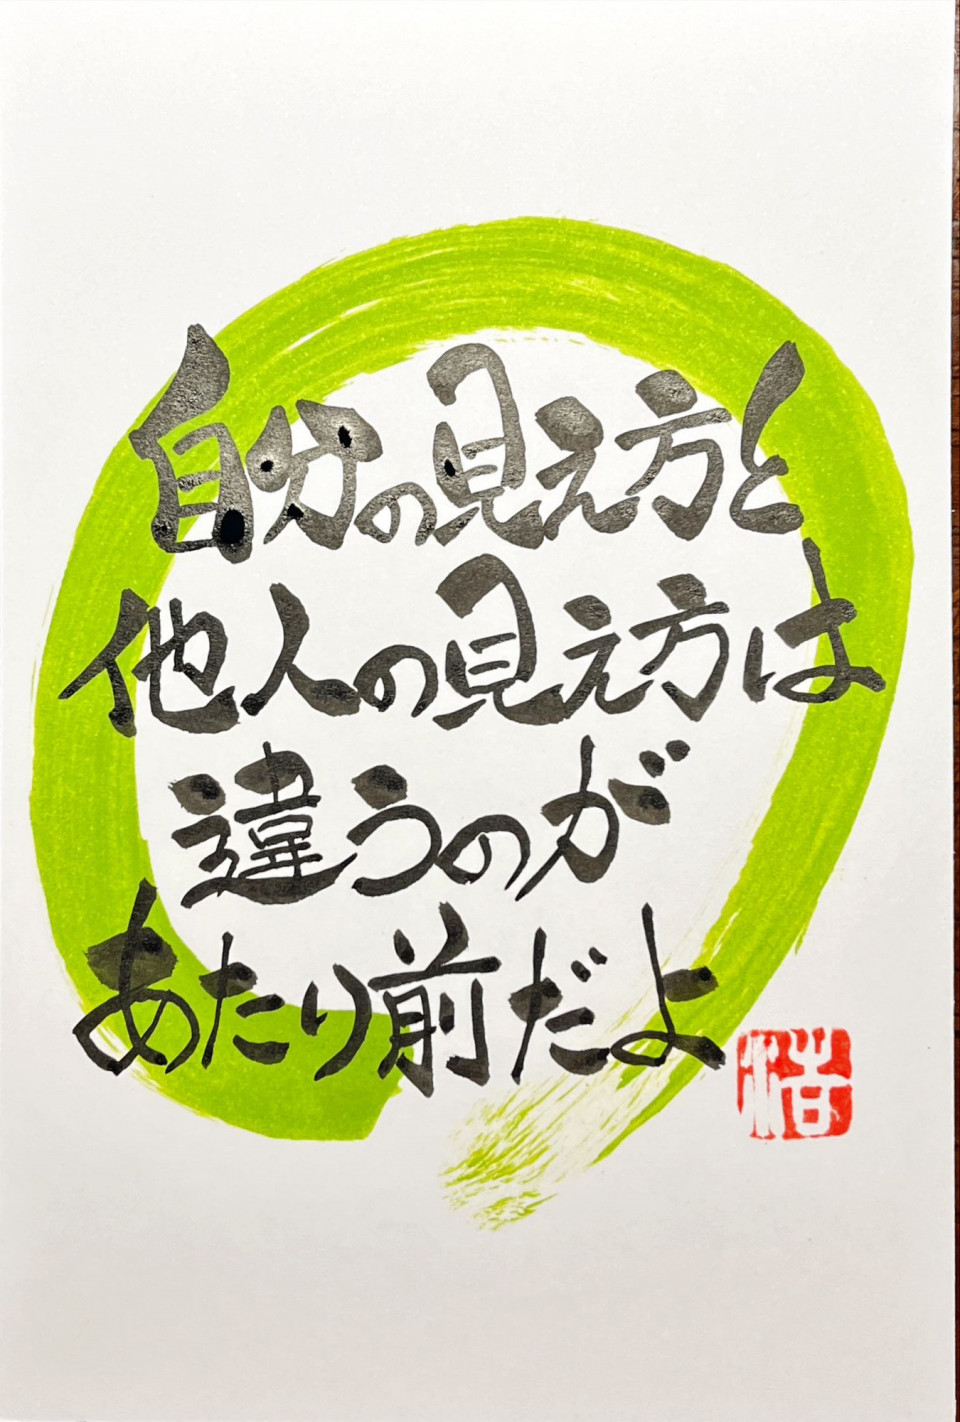 自分の見え方と
他人の見え方は
違うのが
あたり前だよ